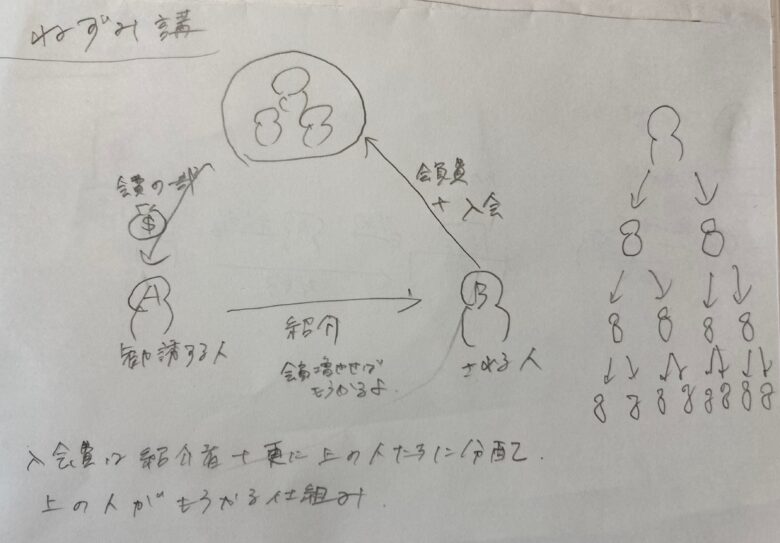 ねずみ講
会費の一部
$
会員費
+ 入会
A
B
勧誘する人
紹介
会員増やせば
もうかるよ.
される人
入会費は紹介者+更に上の人たちに分配し.
上の人がもうかる仕組み.